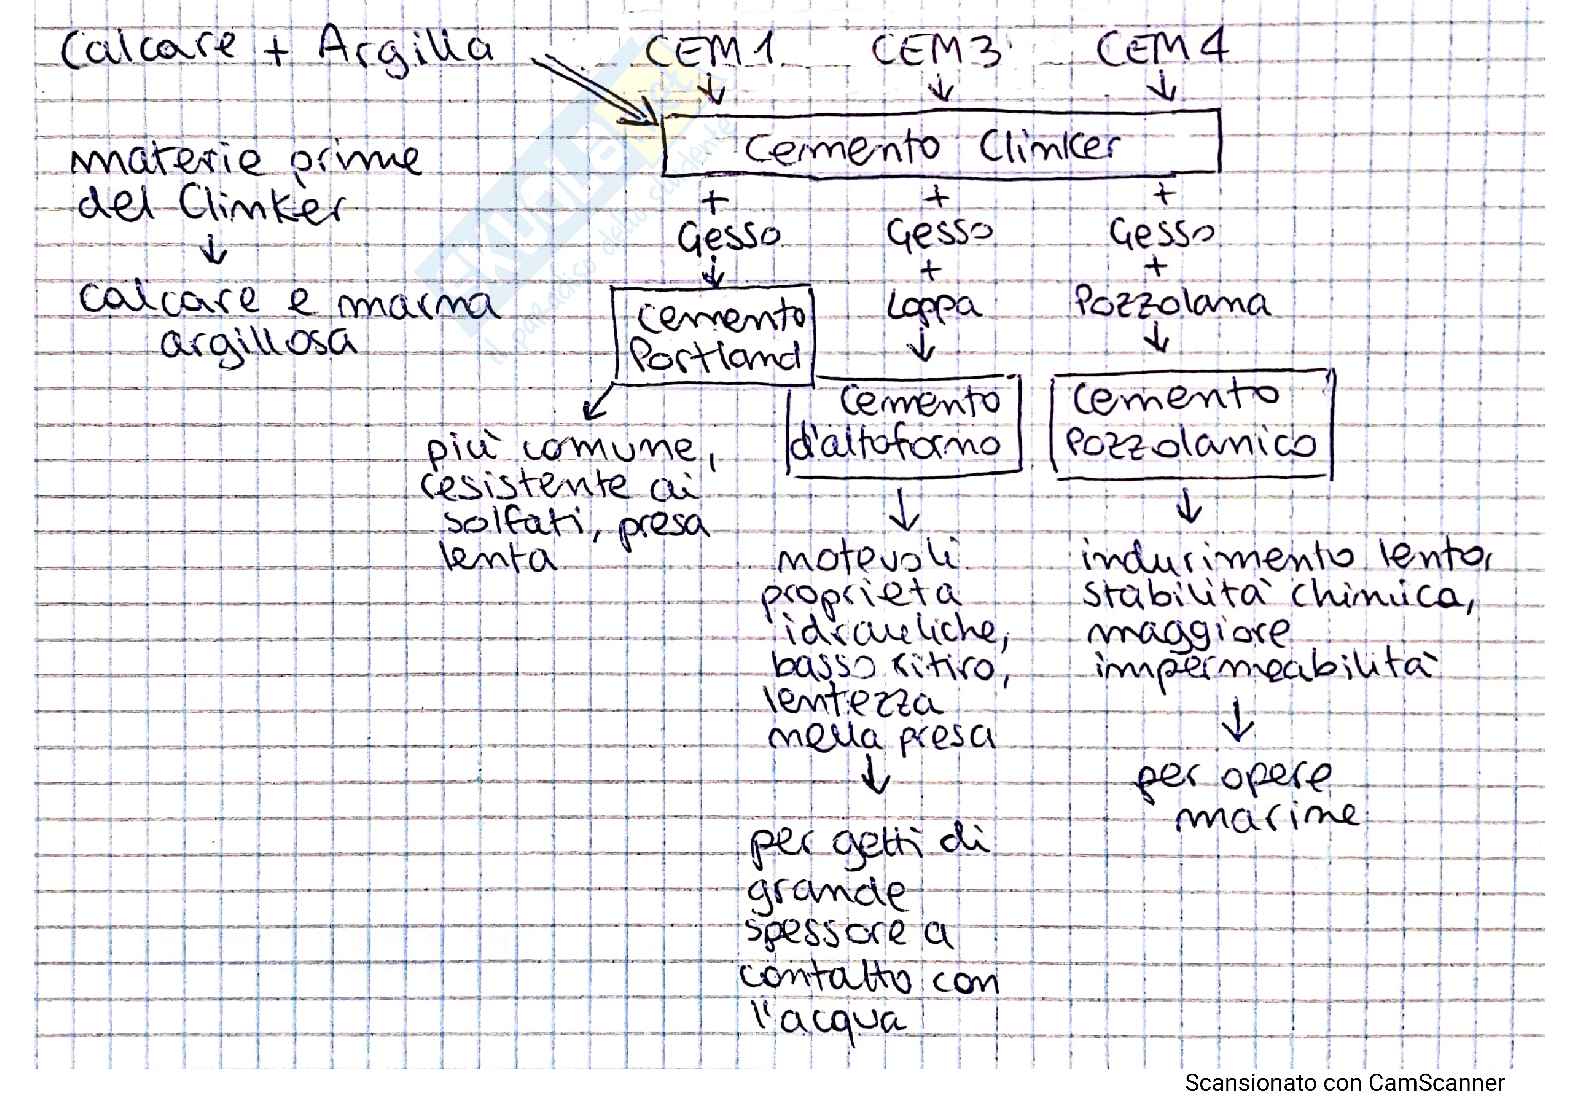 Calcare + Argilla
CEM 1
CEM 3
CEM 4
Cemento Clinker
materie prime
del Clinker
calcare e marna
argillosa
+
Gesso
Cemento
Portland
più comune,
resistente ai
solfati, presa
lenta
+
Gesso
+
Loppa
Cemento
d'altoforno
notevoli
proprietà
idrauliche,
basso ritiro,
lentezza
nella presa
per getti di
grande
spessore a
contatto con
l'acqua
+
Gesso
+
Pozzolana
Cemento
Pozzolanico
indurimento lento,
stabilità chimica,
maggiore
impermeabilità
per opere
marine
SKUOLA.net
il paradiso dello studente
Scansionato con CamScanner